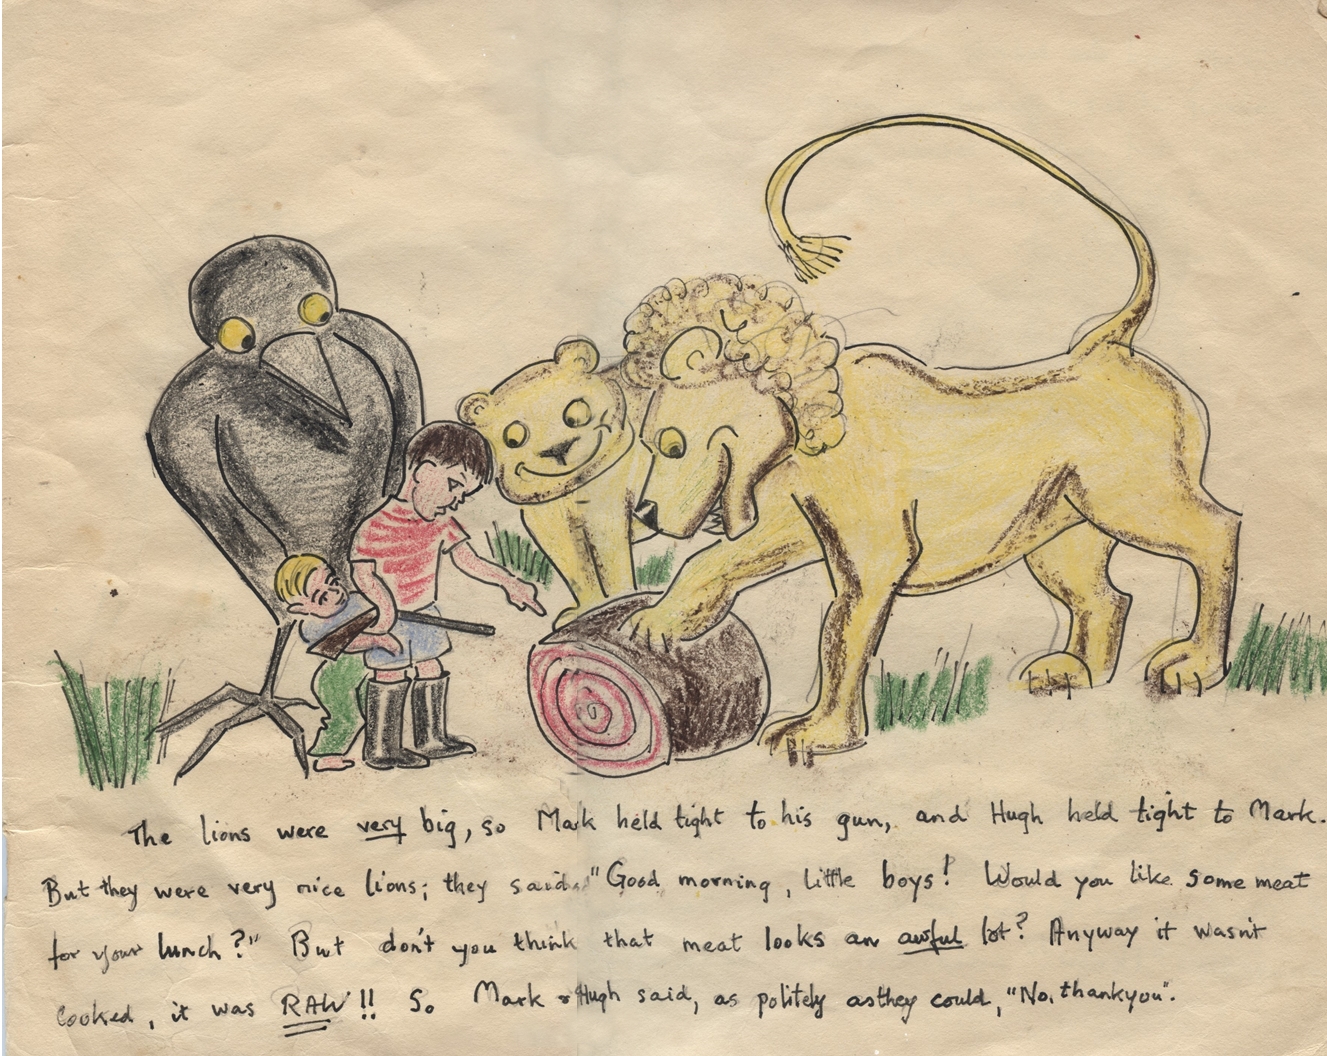 The lions were very big, so Mark held tight to his gun, and Hugh held tight to Mark.
But they were very nice lions; they said, "Good morning, little boys! Would you like some meat
for your lunch?" But don't you think that meat looks an awful lot? Anyway it wasn't
cooked, it was RAW!! So Mark & Hugh said, as politely as they could, "No, thankyou".